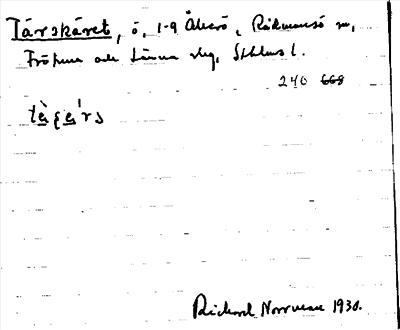 Tärskäret, ö, 1-9 Älvsö, Rådmansö sn,
Frötuna och Länna skg, Sthlms l.
240 668
Richard Norrman 1930.